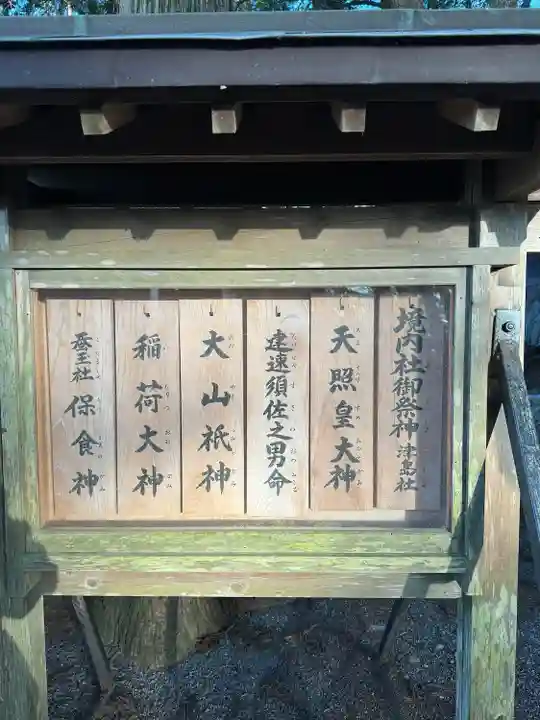 境内社御祭神 津島社
天照皇大神
建速須佐之男命
大山祇神
稲荷大神
蚕玉社 保食神